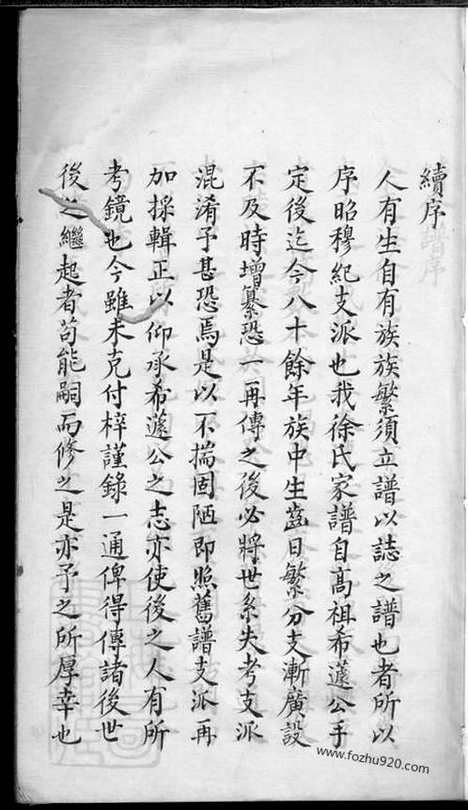 續序
人有生自有族族繁須立譜以誌之譜也者所以
序昭穆紀支派也我徐氏家譜自高祖希蘧公手
定後迄今八十餘年族中生齒日繁分支漸廣設
不及時增纂恐一再傳之後必將世系失考支派
混淆予甚恐焉是以不揣固陋即照舊譜支派再
加採輯正以仰承希蘧公之志亦使後之人有所
考鏡也今雖未克付梓謹錄一通俾得傳諸後世
後之繼起者苟能嗣而修之是亦予之所厚幸也
www.fozhu920.com